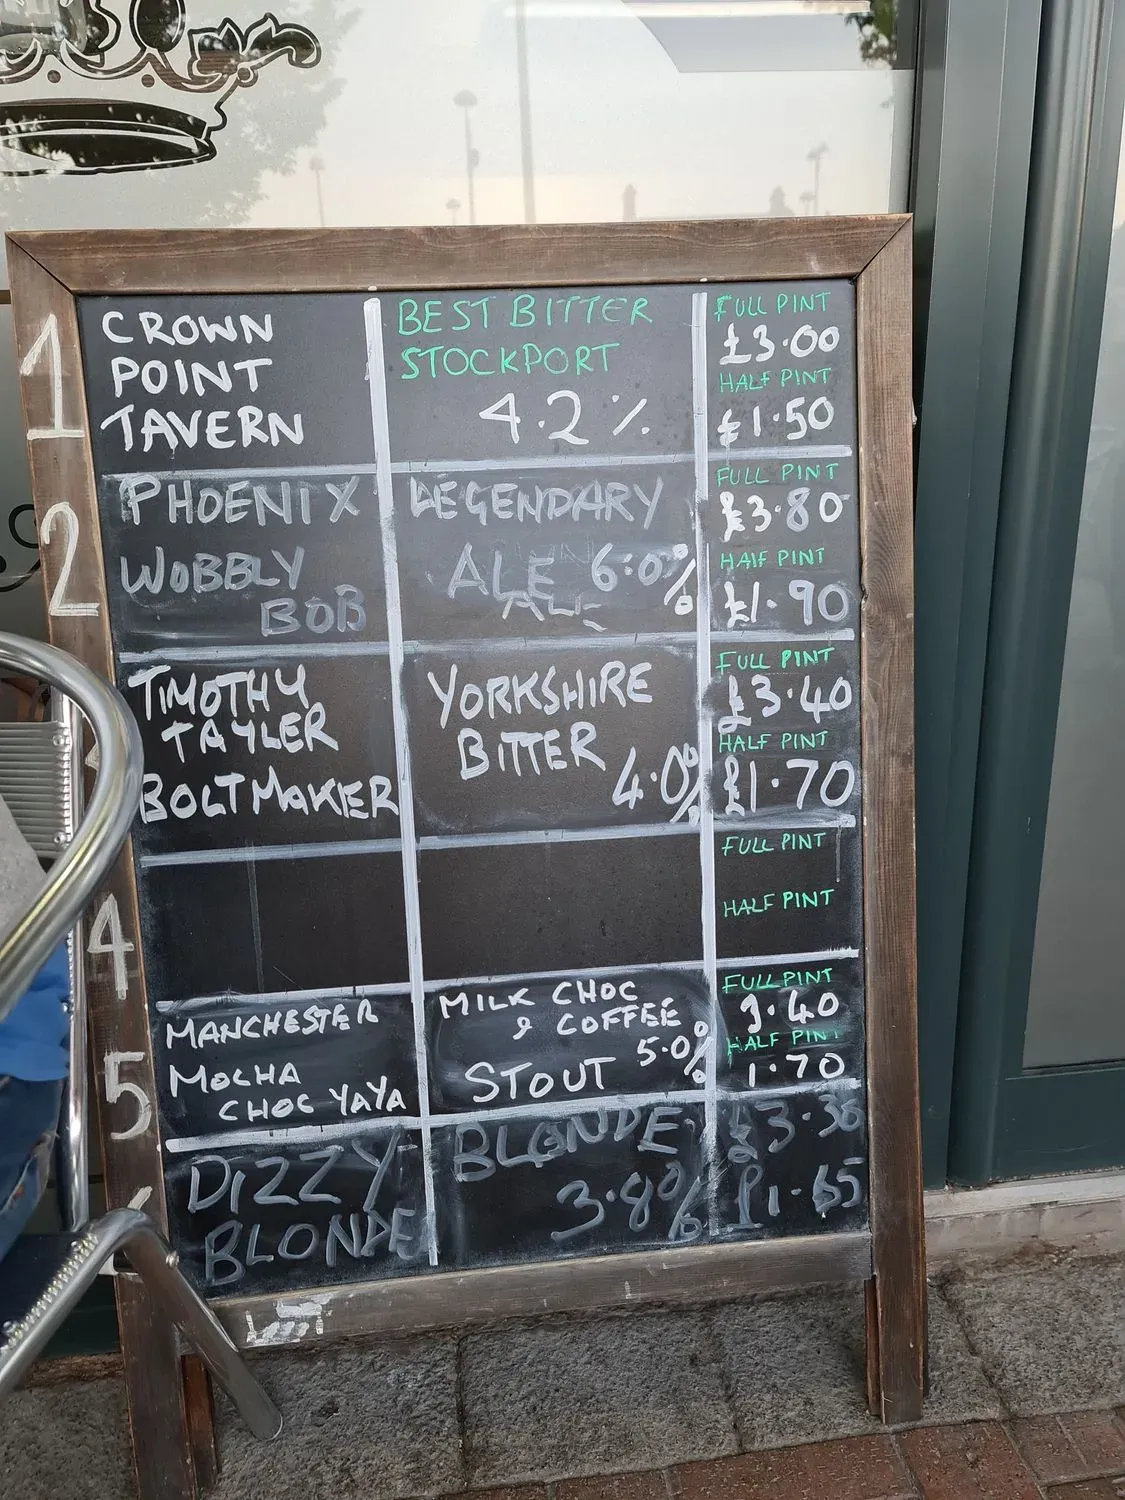 1
CROWN
POINT
TAVERN
BEST BITTER
STOCKPORT
4.2%
FULL PINT
£3.00
HALF PINT
£1.50
2
PHOENIX
WOBBLY
BOB
LEGENDARY
ALE 6.0%
FULL PINT
£3.80
HALF PINT
£1.90
TIMOTHY
TAYLER
BOLTMAKER
YORKSHIRE
BITTER
4.0%
FULL PINT
£3.40
HALF PINT
£1.70
4
FULL PINT
HALF PINT
5
MANCHESTER
MOCHA
CHOC YAYA
MILK CHOC
& COFFEE
5.0%
STOUT
FULL PINT
3.40
HALF PINT
1.70
DIZZY
BLONDE
BLONDE
3.8%
£3.30
£1.65